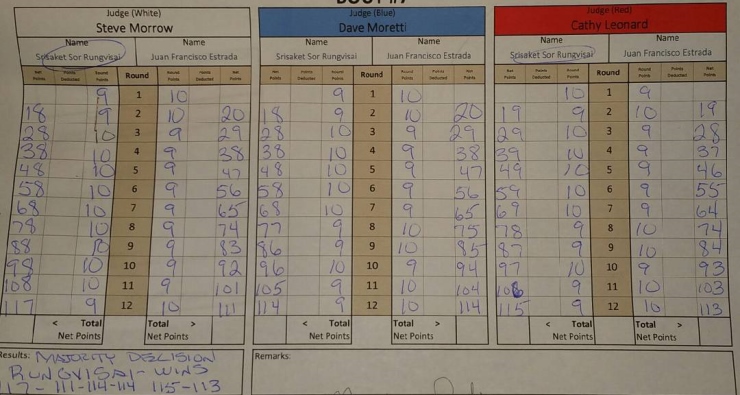 BOUT #7
Judge (White) Judge (Blue) Judge (Red)
Steve Morrow Dave Moretti Cathy Leonard
Name Name Name Name Name Name
Srisaket Sor Rungvisai Juan Francisco Estrada Srisaket Sor Rungvisai Juan Francisco Estrada Srisaket Sor Rungvisai Juan Francisco Estrada
Net Points Points Deducted Round Points Round Round Points Points Deducted Net Points Net Points Points Deducted Round Points Round Round Points Points Deducted Net Points Net Points Points Deducted Round Points Round Round Points Points Deducted Net Points
9 1 10 9 1 10 10 1 9
18 9 2 10 20 18 9 2 10 20 19 9 2 10 19
28 10 3 9 29 28 10 3 9 29 29 10 3 9 28
38 10 4 9 38 38 10 4 9 38 39 10 4 9 37
48 10 5 9 47 48 10 5 9 47 49 10 5 9 46
58 10 6 9 56 58 10 6 9 56 59 10 6 9 55
68 10 7 9 65 68 10 7 9 65 69 10 7 9 64
10 8 9 74 77 9 8 10 75 78 9 8 10 74
88 10 9 9 83 86 9 9 10 85 87 9 9 10 84
98 10 10 9 92 96 10 10 9 94 97 10 10 9 93
108 10 11 9 101 105 9 11 10 104 106 9 11 10 103
117 9 12 10 111 114 9 12 10 114 115 9 12 10 113
< Total Total > < Total Total > < Total Total >
Net Points Net Points Net Points Net Points Net Points Net Points
Results: MAJORITY DECISION Remarks:
RUNGVISAI - WINS
117-111-114-114 115-113